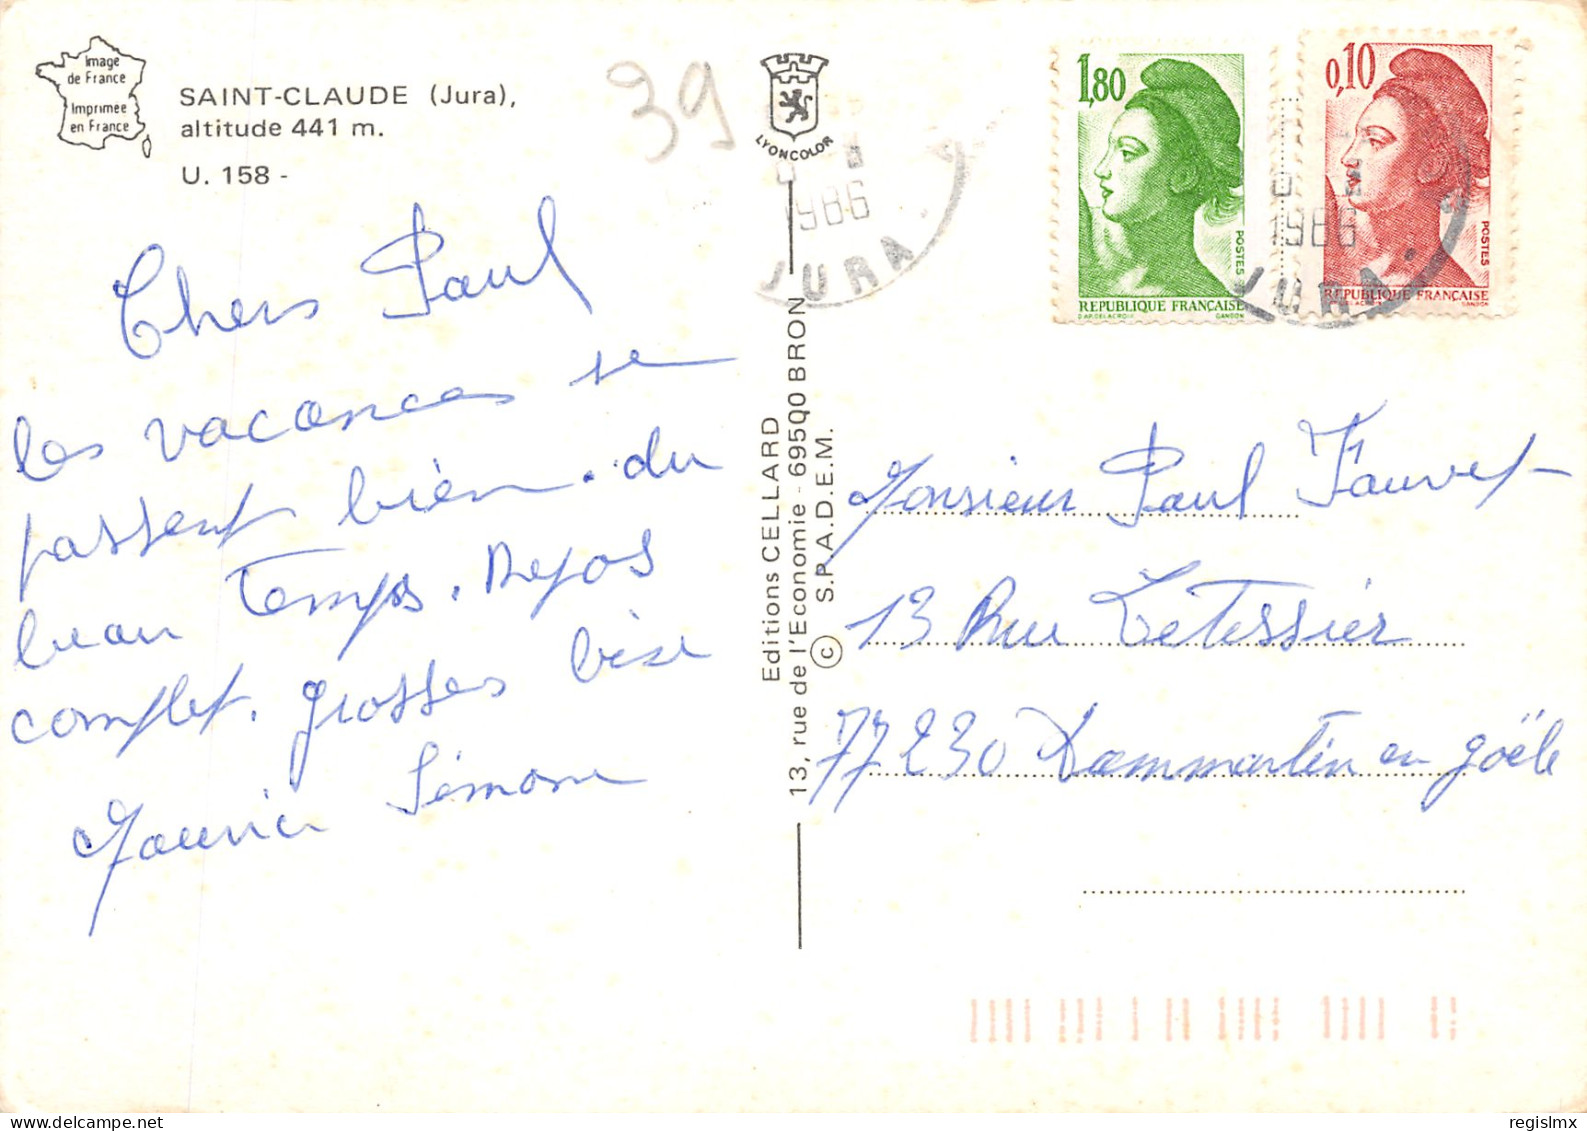 Image
de France
Imprimée
en France
SAINT-CLAUDE (Jura),
altitude 441 m.
U. 158 -
39
LYONCOLOR
1986
JURA
1,80
POSTES
REPUBLIQUE FRANÇAISE
D'AP. DELACROIX GANDON
0,10
POSTES
REPUBLIQUE FRANÇAISE
GANDON
1986
JURA
Chers Paul
les vacances se
passent bien. du
beau Temps. Repos
complet. grosses bise
Maurice Simone
Editions CELLARD
13, rue de l'Economie - 69500 BRON
© S.P.A.D.E.M.
Monsieur Paul Fauvet
13 Rue Letessier
77230 Dammartin en goële
regislmx